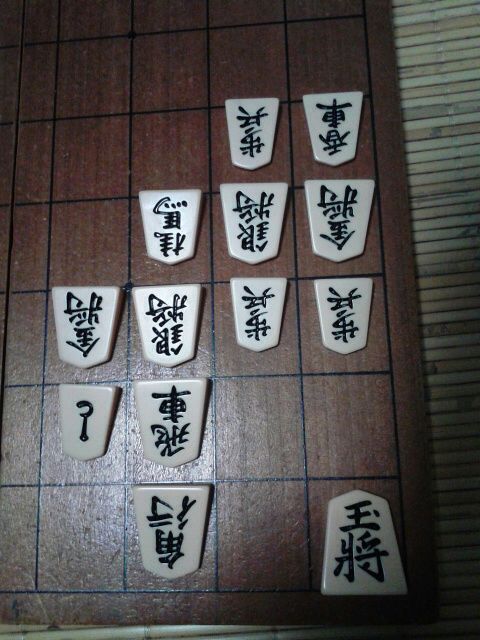 歩兵 香車
桂馬 銀将 金将
金将 銀将 歩兵 歩兵
と 飛車
角行 玉将